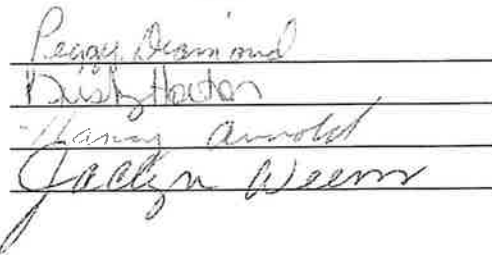 Peggy Diamond
Kristy Horton
Nancy Arnold
Jaclyn Weems